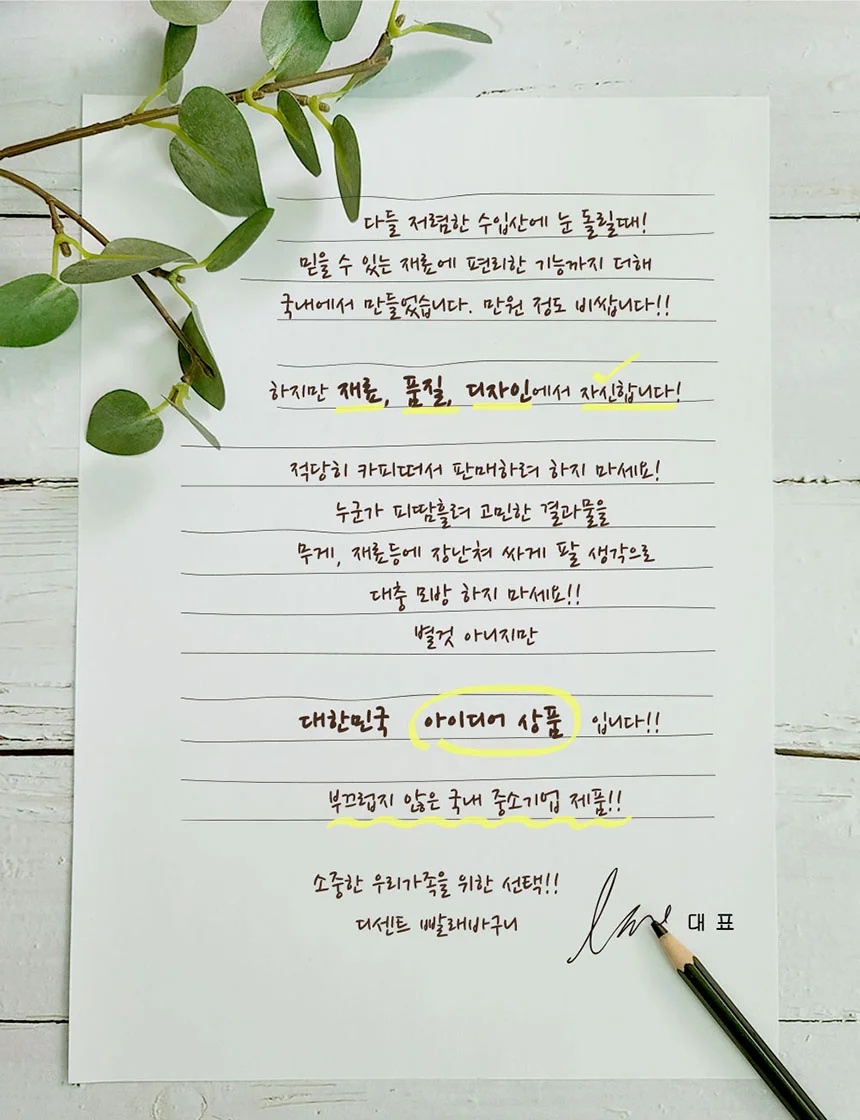 다들 저렴한 수입산에 눈 돌릴때!
믿을 수 있는 재료에 편리한 기능까지 더해
국내에서 만들었습니다. 만원 정도 비쌉니다!!
하지만 재료, 품질, 디자인에서 자신합니다!
적당히 카피떠서 판매하려 하지 마세요!
누군가 피땀흘려 고민한 결과물을
무게, 재료등에 장난쳐 싸게 팔 생각으로
대충 모방 하지 마세요!!
별것 아니지만
대한민국 아이디어 상품 입니다!!
부끄럽지 않은 국내 중소기업 제품!!
소중한 우리가족을 위한 선택!!
디센트 빨래바구니
대 표